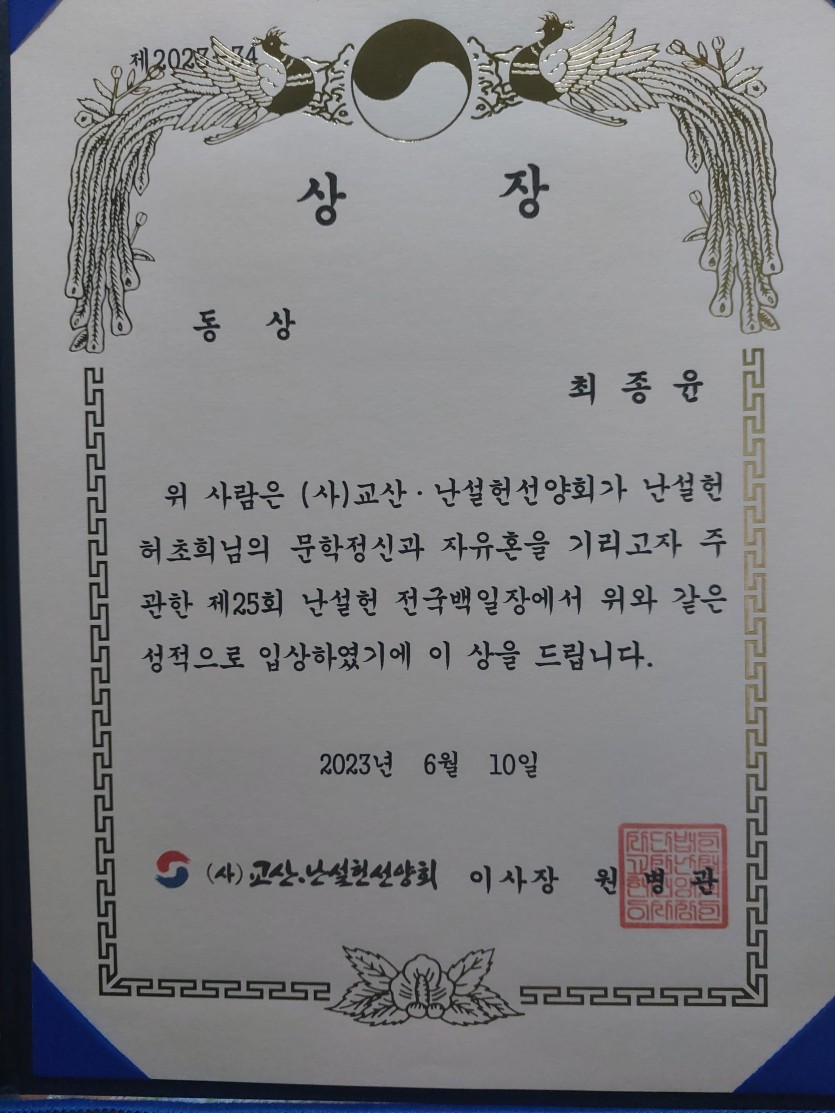 제2023-34
상 장
동 상
최 종 윤
위 사람은 (사)교산·난설헌선양회가 난설헌
허초희님의 문학정신과 자유혼을 기리고자 주
관한 제25회 난설헌 전국백일장에서 위와 같은
성적으로 입상하였기에 이 상을 드립니다.
2023년 6월 10일
(사)교산·난설헌선양회 이사장 원병관